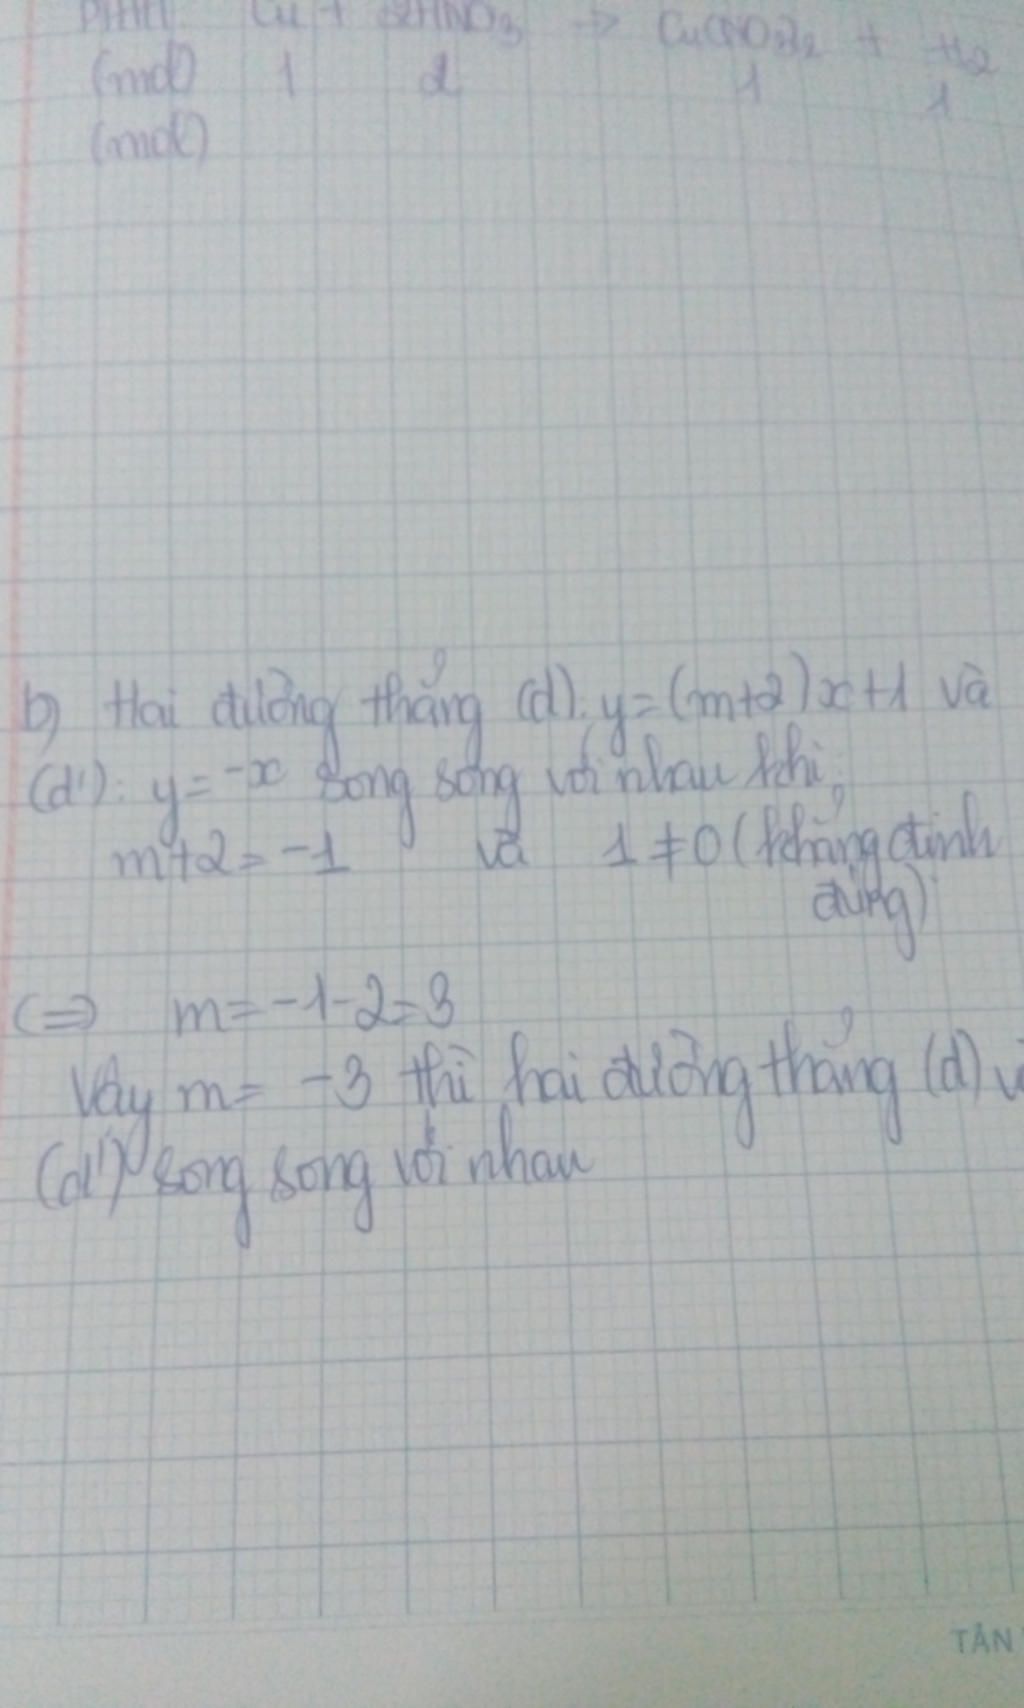 PTHH: Cu + 2HNO3 → Cu(NO3)2 + H2
(mol) 1 2 1 1
(mol)
b) Hai đường thẳng (d): y=(m+2)x+1 và
(d'): y=-x song song với nhau khi:
m+2=-1 và 1≠0 (khẳng định
đúng)
(=> m=-1-2=3
Vậy m= -3 thì hai đường thẳng (d) v
(d') song song với nhau
TÂN